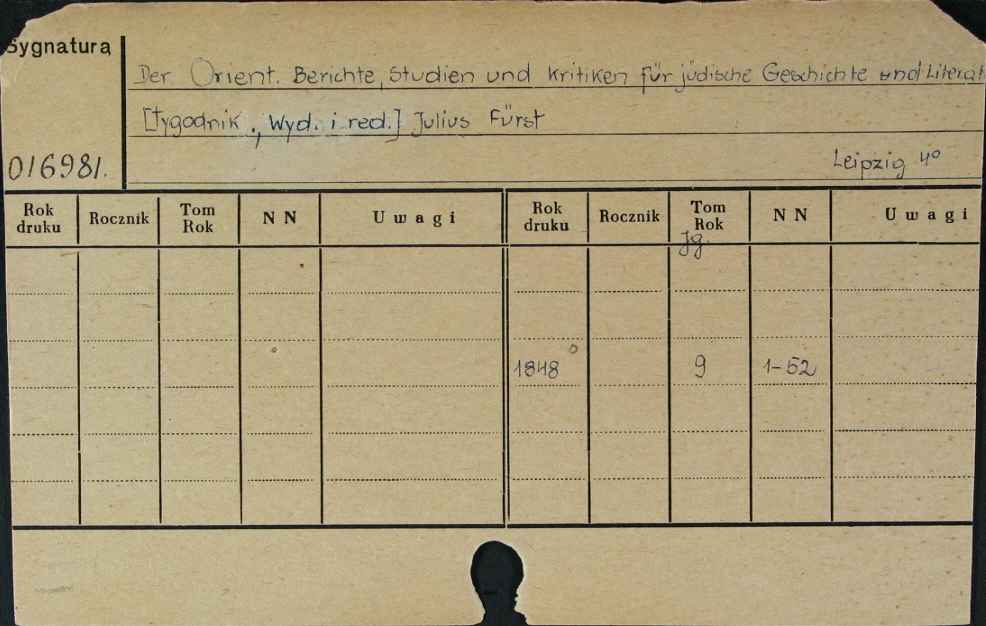 Sygnatura
Der Orient. Berichte, Studien und Kritiken für jüdische Geschichte und Literat
[tygodnik., Wyd. i red.] Julius Fürst
016981.
Leipzig 4°
Rok druku Rocznik Tom Rok N N Uwagi Rok druku Rocznik Tom Rok N N Uwagi
Jg.
1848 9 1-52